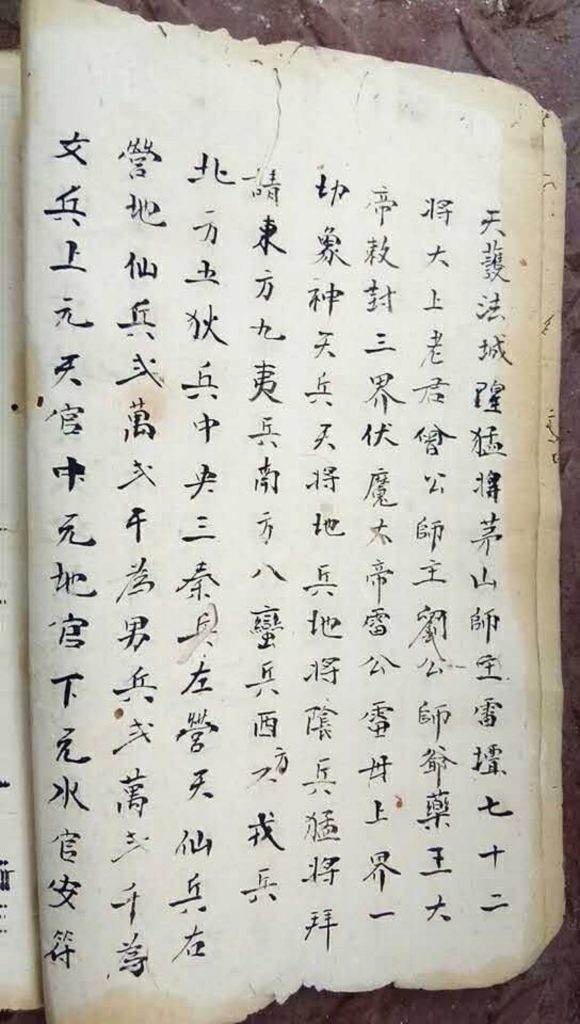 天護法城猩猛將茅山師主雷壇七十二
將大上老君曾公師主劉公師爺藥王大
帝敕封三界伏魔大帝雷公雷母上界一
切象神天兵天將地兵地將陰兵猛將拜
請東方九夷兵南方八蠻兵酉方六戎兵
北方五狄兵中央三秦兵左營天仙兵右
營地仙兵弍萬弍千為男兵弍萬弍千為
女兵上元天官中元地官下元水官安符